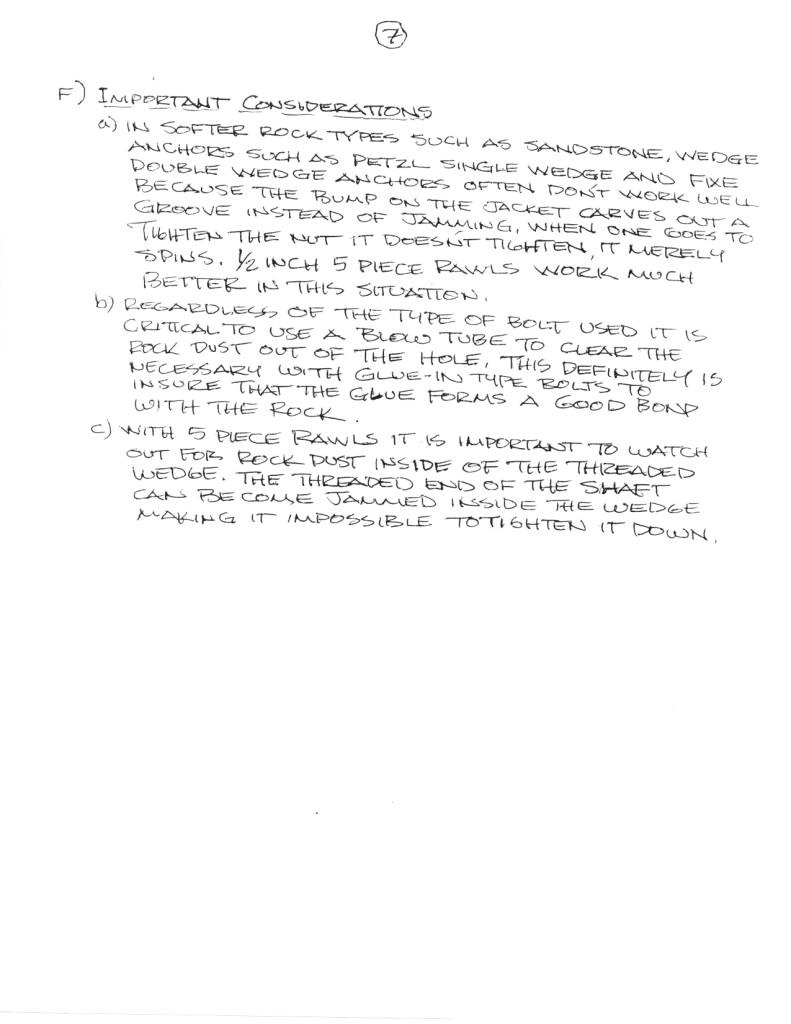 7
F) IMPORTANT CONSIDERATIONS
a) IN SOFTER ROCK TYPES SUCH AS SANDSTONE, WEDGE
ANCHORS SUCH AS PETZL SINGLE WEDGE AND FIXE
DOUBLE WEDGE ANCHORS OFTEN DON'T WORK WELL
BECAUSE THE BUMP ON THE JACKET CARVES OUT A
GROOVE INSTEAD OF JAMMING, WHEN ONE GOES TO
TIGHTEN THE NUT IT DOESN'T TIGHTEN, IT MERELY
SPINS. 1/2 INCH 5 PIECE RAWLS WORK MUCH
BETTER IN THIS SITUATION.
b) REGARDLESS OF THE TYPE OF BOLT USED IT IS
CRITICAL TO USE A BLOW TUBE TO CLEAR THE
ROCK DUST OUT OF THE HOLE, THIS DEFINITELY IS
NECESSARY WITH GLUE-IN TYPE BOLTS TO
INSURE THAT THE GLUE FORMS A GOOD BOND
WITH THE ROCK.
c) WITH 5 PIECE RAWLS IT IS IMPORTANT TO WATCH
OUT FOR ROCK DUST INSIDE OF THE THREADED
WEDGE. THE THREADED END OF THE SHAFT
CAN BECOME JAMMED INSIDE THE WEDGE
MAKING IT IMPOSSIBLE TO TIGHTEN IT DOWN.